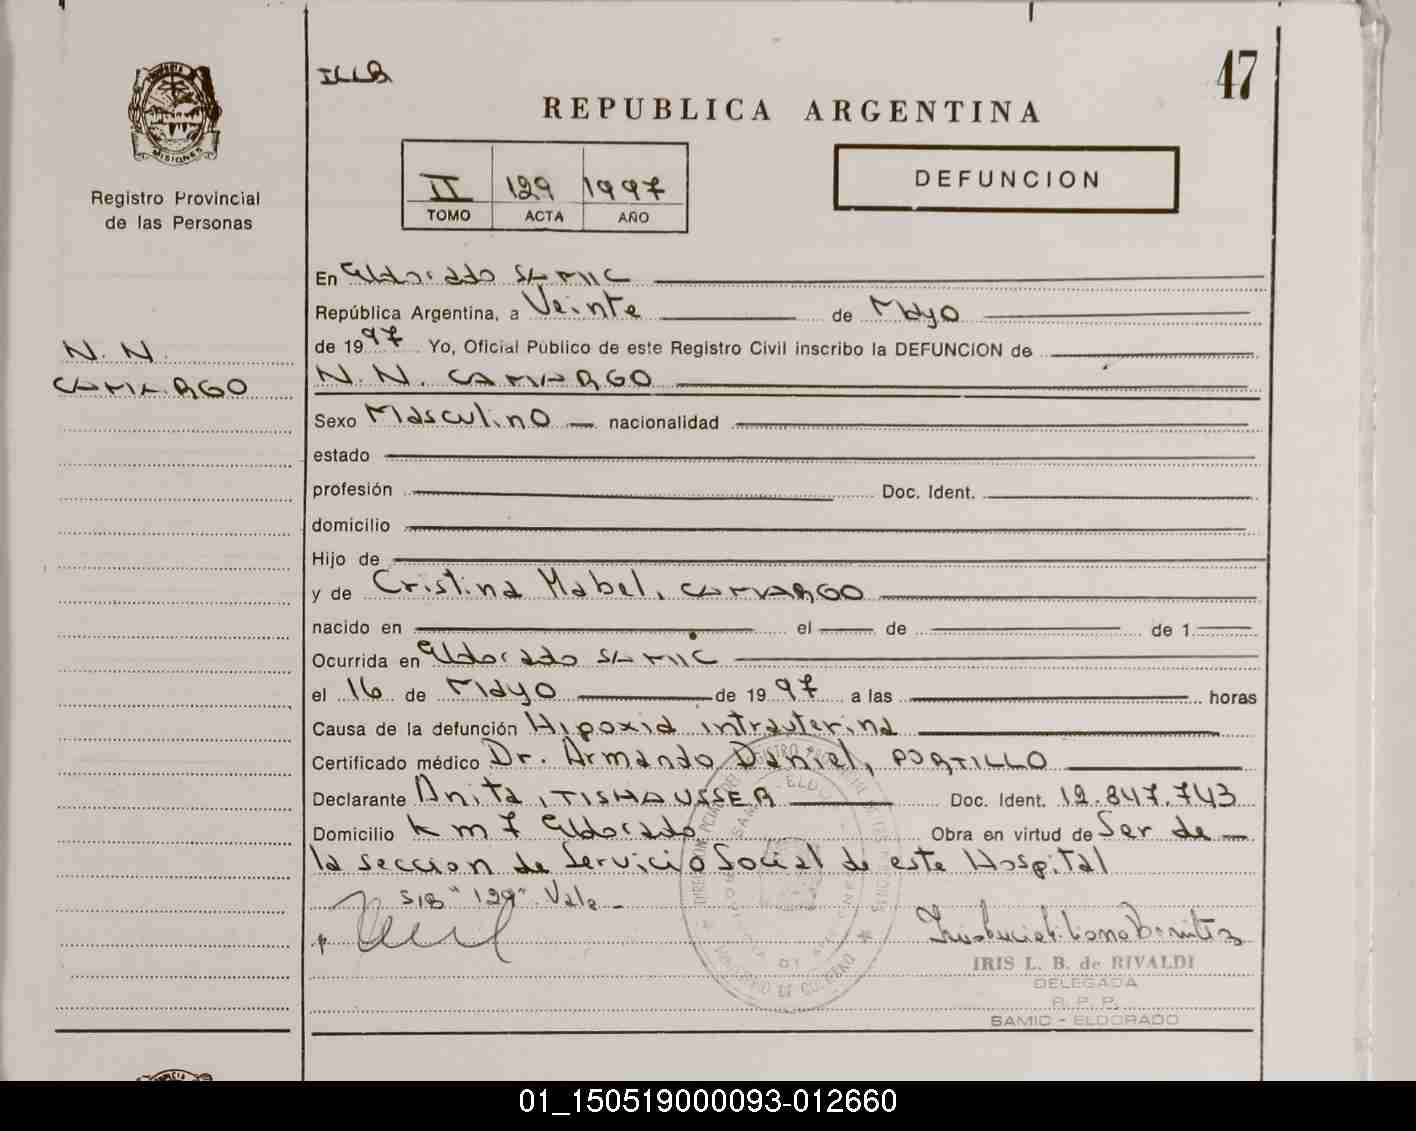 ILLB
47
REPUBLICA ARGENTINA
PROVINCIA
MISIONES
Registro Provincial
de las Personas
II 129 1997
TOMO ACTA AÑO
DEFUNCION
En Eldorado SAMIC
República Argentina, a Veinte de Mayo
de 1997 Yo, Oficial Público de este Registro Civil inscribo la DEFUNCION de
N. N. CAMARGO
N. N.
CAMARGO
Sexo Masculino nacionalidad
estado
profesión Doc. Ident.
domicilio
Hijo de
y de Cristina Mabel, CAMARGO
nacido en el de de 1
Ocurrida en Eldorado SAMIC
el 16 de Mayo de 1997 a las horas
Causa de la defunción Hipoxia intrauterina
Certificado médico Dr. Armando Daniel, PORTILLO
Declarante Anita, TISHAUSSER Doc. Ident. 12.847.743
Domicilio Km 7 Eldorado Obra en virtud de Ser de
la seccion de Servicio Social de este Hospital
S/B "129" Vale
IRIS L. B. de RIVALDI
DELEGADA
R. P. P.
SAMIC - ELDORADO
01_150519000093-012660